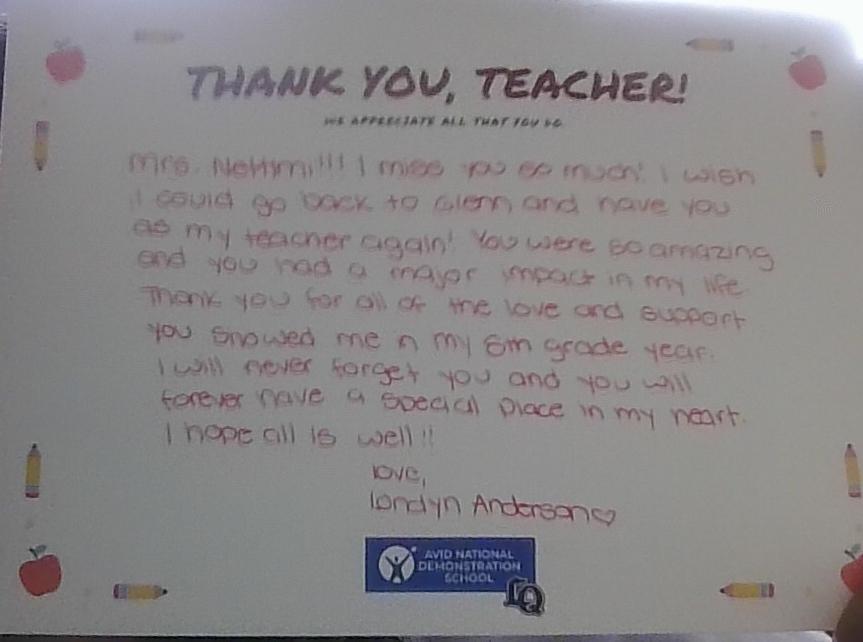 THANK YOU, TEACHER!
WE APPRECIATE ALL THAT YOU DO.
Mrs. Nettimi!!! I miss you so much! I wish
I could go back to Glenn and have you
as my teacher again! You were so amazing
and you had a major impact in my life.
Thank you for all of the love and support
you showed me in my 8th grade year.
I will never forget you and you will
forever have a special place in my heart.
I hope all is well!!
love,
londyn Anderson♡
AVID NATIONAL
DEMONSTRATION
SCHOOL
LQ